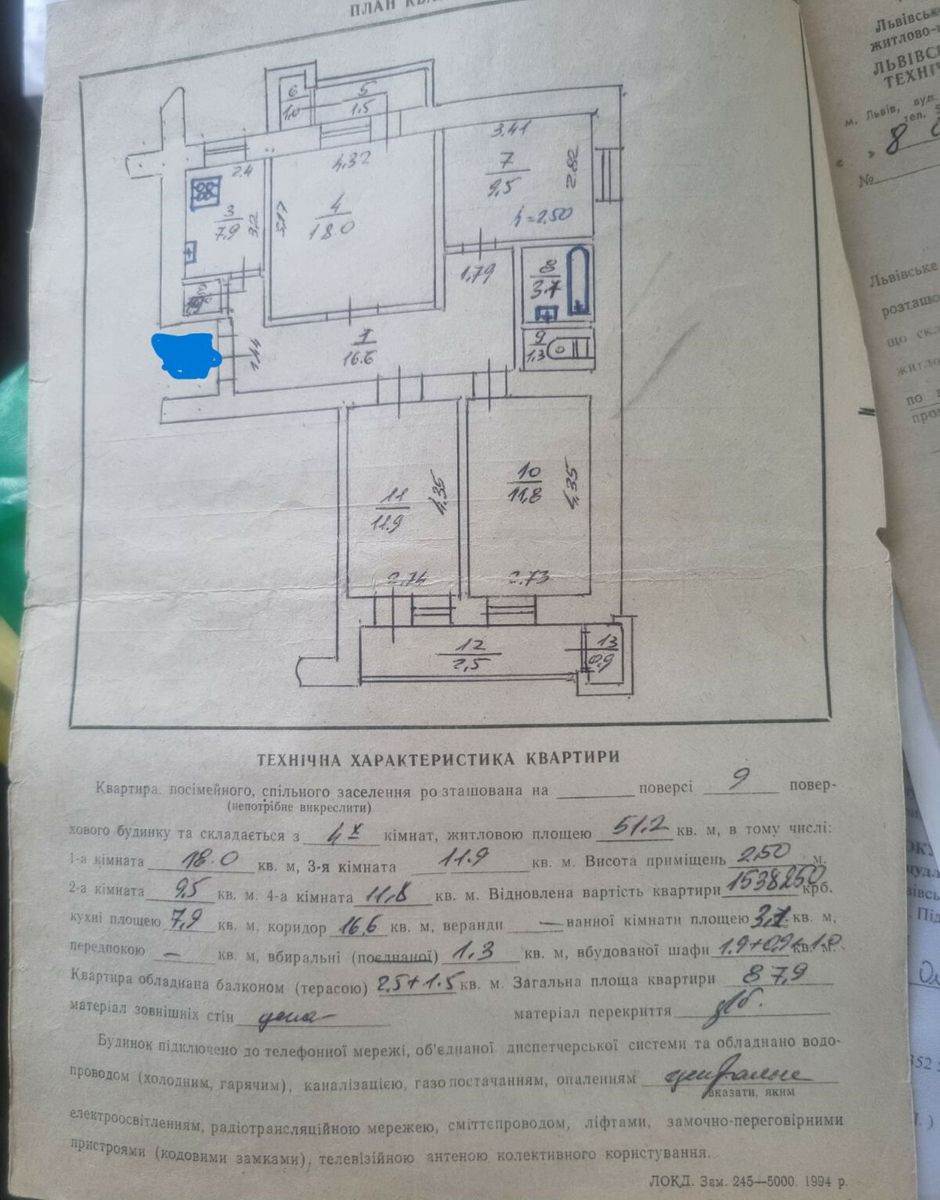 ПЛАН КВА
6
1,0
5
1.5
2.4
4,32
3.41
3
7.9
3,2
4
18.0
7
9,5
2.82
h=2.50
1,79
8
3.7
9
1,3
1
16.6
1,44
11
11.9
4,35
10
11,8
4,35
2,74
2.73
12
2,5
13
0.9
ТЕХНІЧНА ХАРАКТЕРИСТИКА КВАРТИРИ
Квартира посімейного, спільного заселення розташована на ______ поверсі 9 повер-
(непотрібне викреслити)
хового будинку та складається з 4х кімнат, житловою площею 51.2 кв. м, в тому числі:
1-а кімната 18.0 кв. м, 3-я кімната 11.9 кв. м. Висота приміщень 2.50 м.
2-а кімната 9,5 кв. м. 4-а кімната 11,8 кв. м. Відновлена вартість квартири 1538250 крб.
кухні площею 7,9 кв. м, коридор 16,6 кв. м, веранди — ванної кімнати площею 3,7 кв. м,
передпокою — кв. м, вбиральні (поєднаної) 1.3 кв. м, вбудованої шафи 1.9+0.9+1.0 кв. м.
Квартира обладнана балконом (терасою) 2,5+1.5 кв. м. Загальна площа квартири 87,9
матеріал зовнішніх стін цегла матеріал перекриття з/б.
Будинок підключено до телефонної мережі, об'єднаної диспетчерської системи та обладнано водо-
проводом (холодним, гарячим), каналізацією, газопостачанням, опаленням центральне
вказати, яким
електроосвітленням, радіотрансляційною мережею, сміттєпроводом, ліфтами, замочно-переговірними
пристроями (кодовими замками), телевізійною антеною колективного користування.
ЛОКД. Зам. 245—5000. 1994 р.
Львівське
житлово-к
ЛЬВІВСЬ
ТЕХНІЧ
м. Львів, вул.
тел.
« » 8
№
Львівське
розташо
що скл
житло
по
про
352